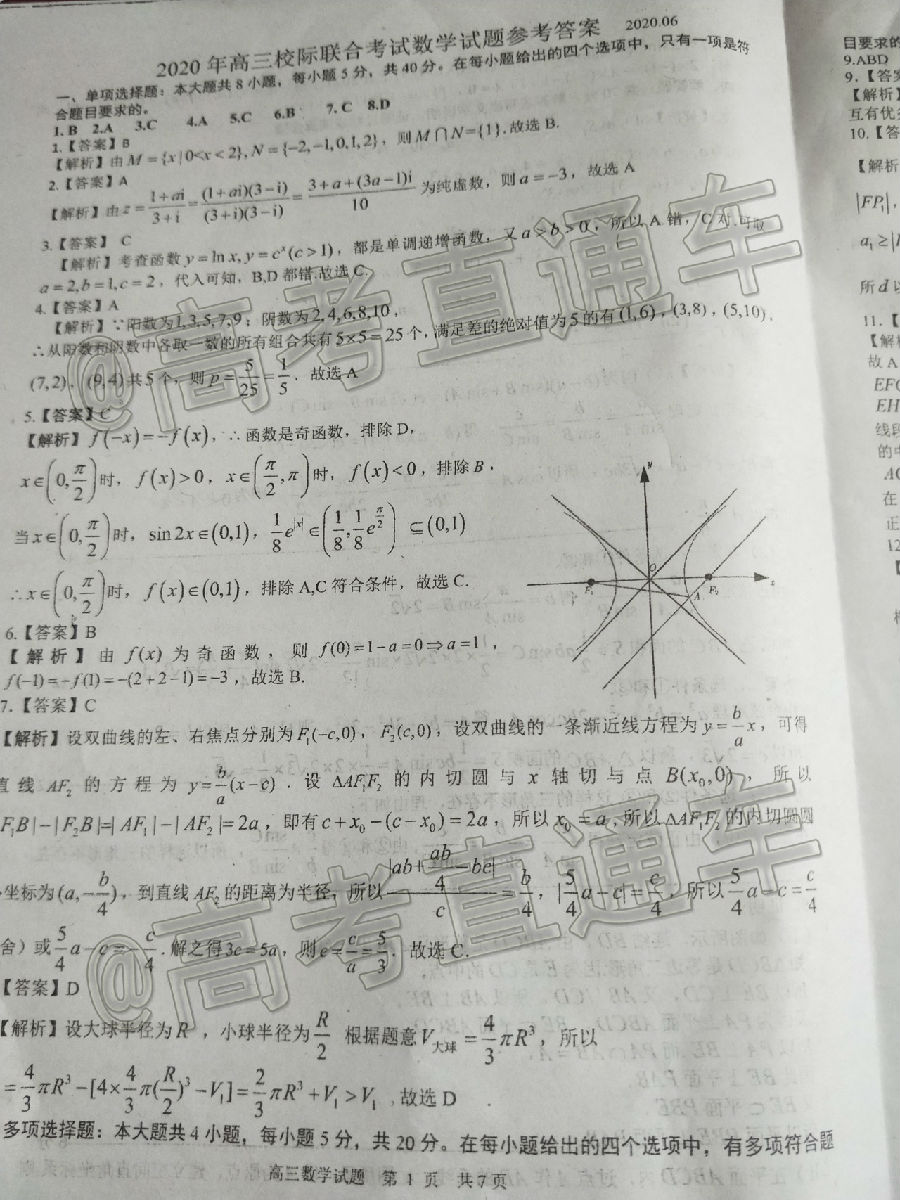 2020年高三校际联合考试数学试题参考答案 2020.06
一、单项选择题：本大题共8小题，每小题5分，共40分。在每小题给出的四个选项中，只有一项是符
合题目要求的。
1. B 2.A 3.C 4.A 5.C 6.B 7. C 8.D
1.【答案】B
【解析】由M={x|0<x<2},N={-2,-1,0,1,2}，则M∩N={1}.故选B.
2.【答案】A
【解析】由z=(1+ai)/(3+i)=((1+ai)(3-i))/((3+i)(3-i))=(3+a+(3a-1)i)/10 为纯虚数，则a=-3，故选A
3.【答案】 C
【解析】考查函数y=ln x,y=c^x(c>1)，都是单调递增函数，又a>b>0，所以A错，C对.可取
a=2,b=1,c=2，代入可知，B,D都错.故选C.
4.【答案】A
【解析】∵阳数为1,3,5,7,9；阴数为2,4,6,8,10，
∴从阳数和阴数中各取一数的所有组合共有5×5=25个，满足差的绝对值为5的有(1,6)，(3,8)，(5,10)，
(7,2)，(9,4)共5个，则p=5/25=1/5．故选A
5.【答案】C
【解析】f(-x)=-f(x)，∴函数是奇函数，排除D，
x∈(0,π/2)时，f(x)>0，x∈(π/2,π)时，f(x)<0，排除B，
当x∈(0,π/2)时，sin2x∈(0,1)，1/8 e^|x|∈(1/8,1/8 e^(π/2)) ⊆(0,1)
∴x∈(0,π/2)时，f(x)∈(0,1)，排除A,C符合条件，故选C.
y
O
x
F₁
A
F₂
6.【答案】B
【解析】由f(x)为奇函数，则f(0)=1-a=0⇒a=1，
f(-1)=-f(1)=-(2+2-1)=-3，故选B.
7.【答案】C
【解析】设双曲线的左、右焦点分别为F₁(-c,0)，F₂(c,0)，设双曲线的一条渐近线方程为y=b/a x，可得
直线AF₂的方程为y=b/a(x-c)．设ΔAF₁F₂的内切圆与x轴切与点B(x₀,0)，所以
F₁B|-|F₂B|=|AF₁|-|AF₂|=2a，即有c+x₀-(c-x₀)=2a，所以x₀=a.所以ΔAF₁F₂的内切圆圆
坐标为(a,-b/4)，到直线AF₂的距离为半径，所以|ab+ab/4-bc|/c=b/4，|5/4 a-c|=c/4，所以5/4 a-c=c/4
舍）或5/4 a-c=-c/4.解之得3c=5a，则e=c/a=5/3．故选C.
【答案】D
【解析】设大球半径为R，小球半径为R/2 根据题意V大球=4/3 πR³，所以
=4/3 πR³-[4×4/3 π(R/2)³-V₁]=2/3 πR³+V₁>V₁,故选D
多项选择题：本大题共4小题，每小题5分，共20分。在每小题给出的四个选项中，有多项符合题
高三数学试题 第 1 页 共7页
目要求的
9.ABD
9.【答案
【解析】
互有优
10.【答
【解析
|FP₁|，
a₁≥|
所d以
11.【
【解
故A
EFC
EH
线段
的中
AC
在
正
12
@高考直通车
@高考直通车